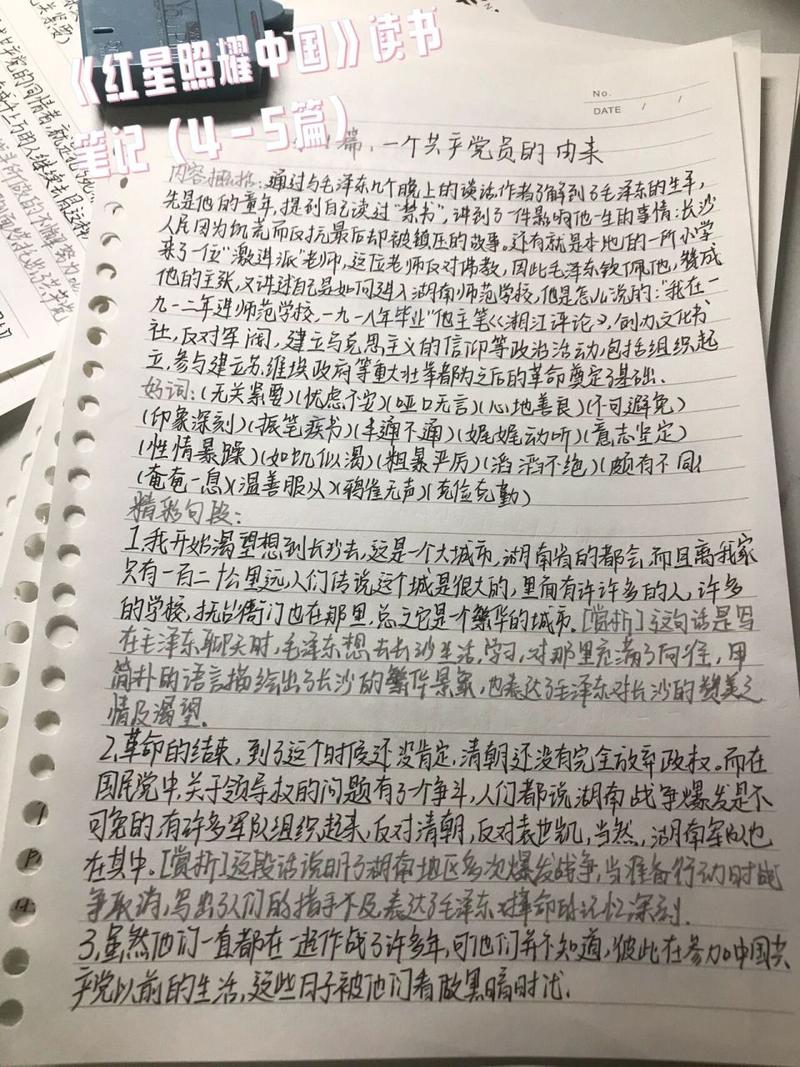 《红星照耀中国》读书
笔记（4-5篇）
No.
DATE / /
篇，一个共产党员的由来
内容概括：通过与毛泽东几个晚上的谈话，作者了解到了毛泽东的生平，
先是他的童年，提到自己读过"禁书"，讲到了一件影响他一生的事情：长沙
人民因为饥荒而反抗最后却被镇压的故事。还有就是本地的一所小学
来了一位"激进派"老师，这位老师反对佛教，因此毛泽东钦佩他，赞成
他的主张，又讲过自己是如何进入湖南师范学校，他是怎么说的："我在一
九一二年进师范学校，一九一八年毕业"他主笔《湘江评论》，创办文化书
社，反对军阀，建立马克思主义的信仰等政治活动，包括组织起
立，参与建立苏维埃政府等重大壮举都为之后的革命奠定了基础.
好词：(无关紧要)(忧虑不安)(哑口无言)(心地善良)(不可避免)
(印象深刻)(振笔疾书)(半通不通)(娓娓动听)(意志坚定)
(性情暴躁)(如饥似渴)(粗暴严厉)(滔滔不绝)(颇有不同)
(奄奄一息)(温善服从)(鸦雀无声)(克俭克勤)
精彩句段：
1.我开始渴望想到长沙去，这是一个大城市，湖南省的都会，而且离我家
只有一百二十公里远，人们传说这个城是很大的，里面有许许多的人，许多
的学校，抚台衙门也在那里，总之它是个繁华的城市。[赏析]这句话是写
在毛泽东聊天时，毛泽东想去长沙生活，学习，对那里充满了向往，用
简朴的语言描绘出了长沙的繁华景象，也表达了毛泽东对长沙的赞美之
情及渴望.
2.革命的结束，到了这个时候还没肯定，清朝还没有完全放弃政权。而在
国民党中，关于领导权的问题有了个争斗，人们都说湖南战争爆发是不
可免的，有许多军队组织起来，反对清朝，反对袁世凯，当然，湖南军队也
在其中。[赏析]这段话说明了湖南地区多次爆发战争，当准备行动时战
争取消，写出了人们的措手不及，表达了毛泽东对革命的记忆深刻.
3.虽然他们一直都在一起作战了许多年，可他们并不知道，彼此在参加中国共
产党以前的生活，这些日子被他们看做黑暗时代.